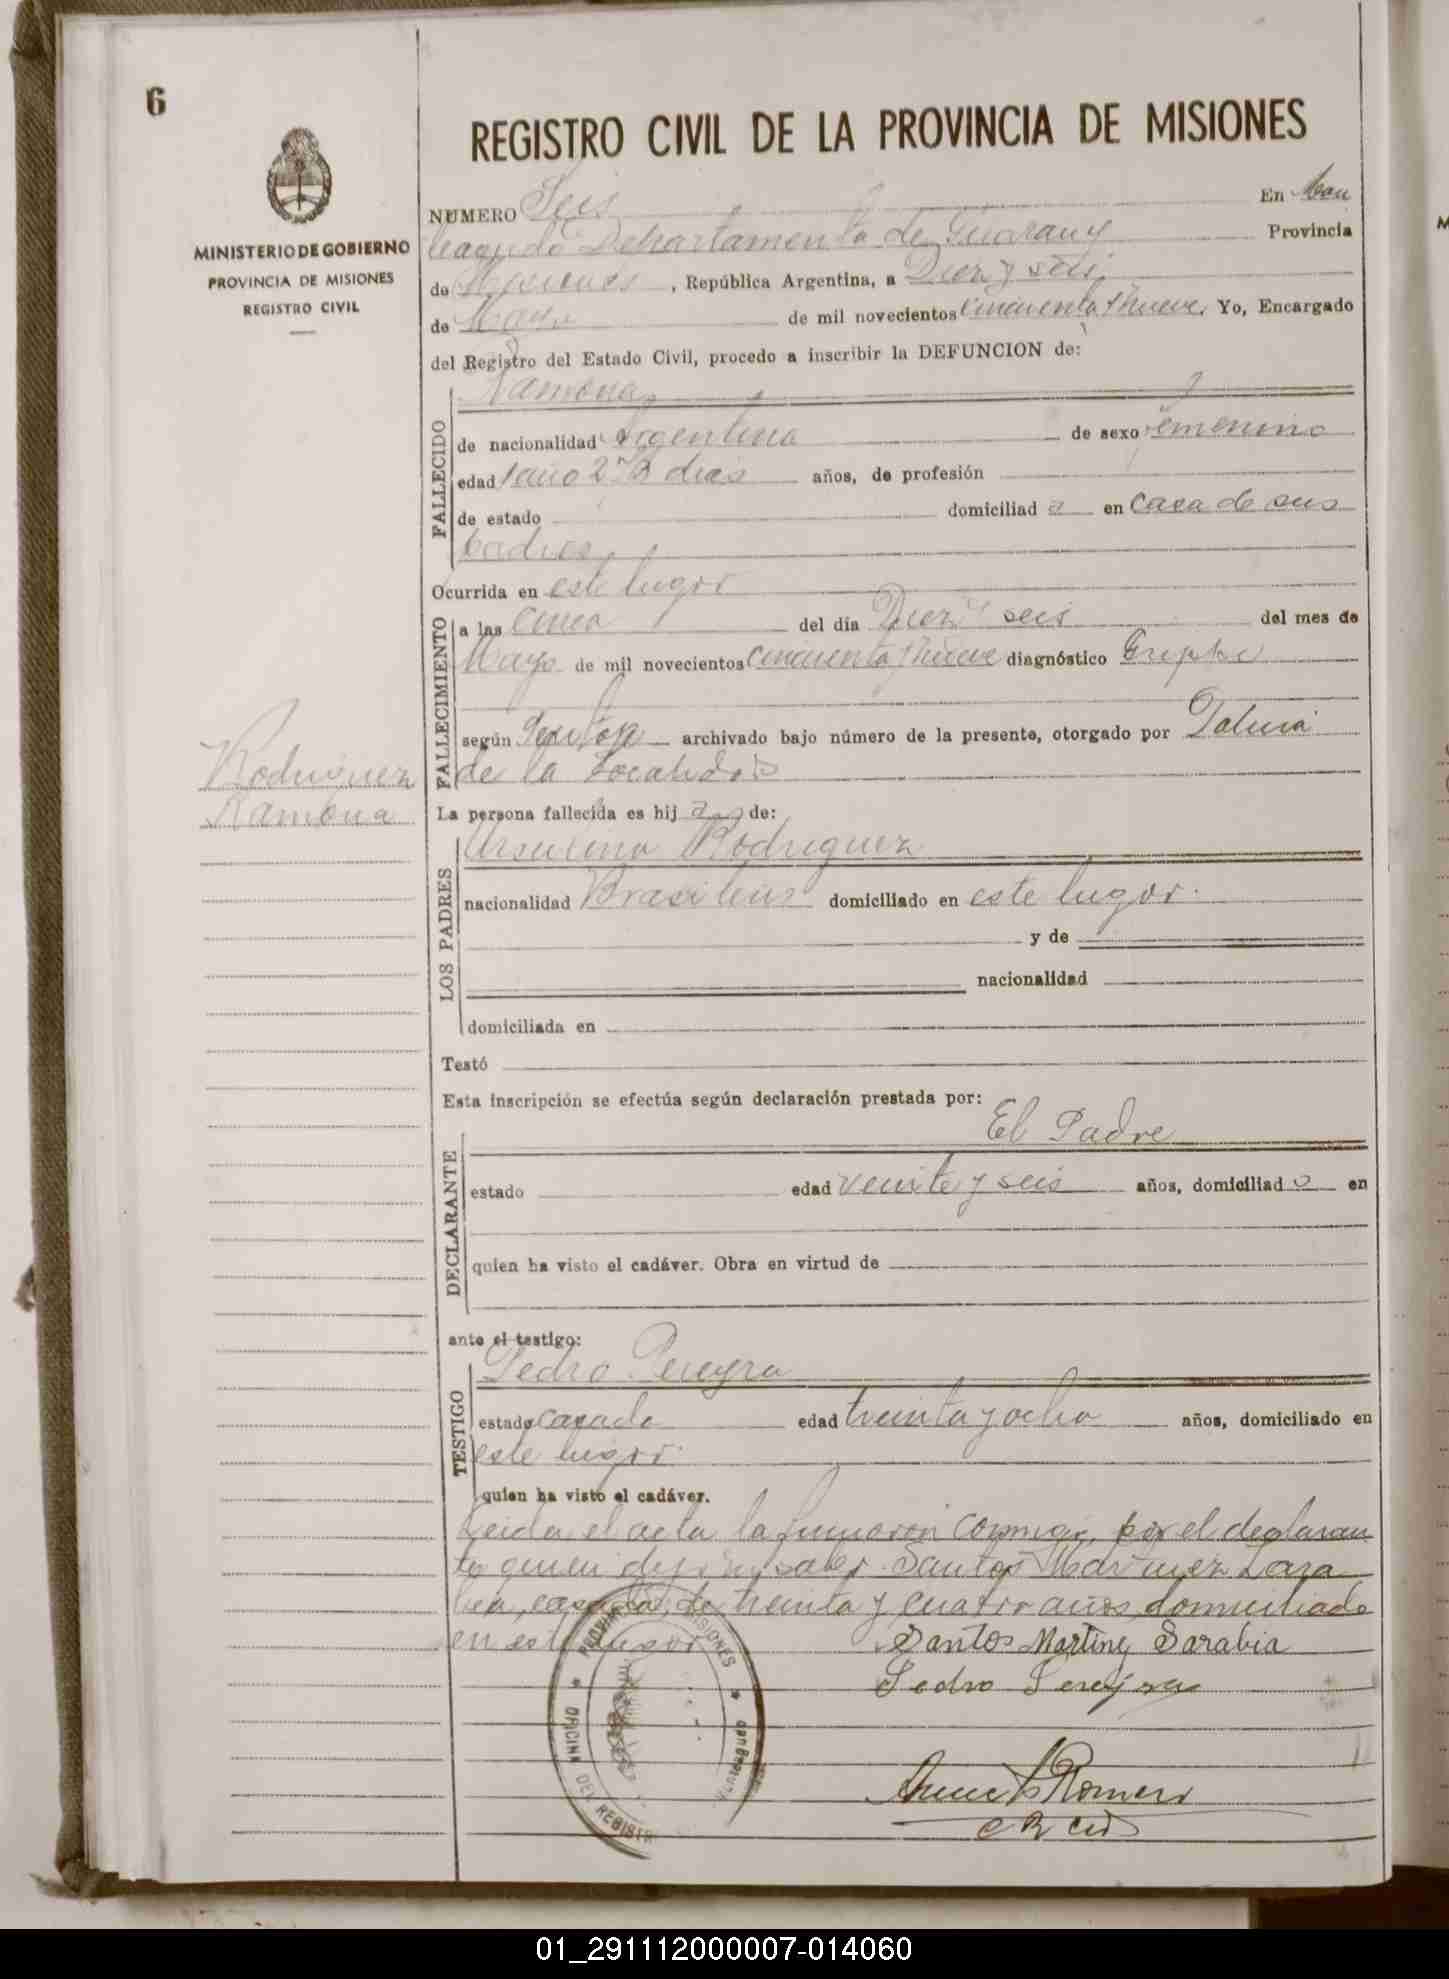 6
REGISTRO CIVIL DE LA PROVINCIA DE MISIONES
MINISTERIO DE GOBIERNO
PROVINCIA DE MISIONES
REGISTRO CIVIL
NUMERO Seis En
Departamento de Guarany Provincia
de Misiones, República Argentina, a Diez y seis
de Mayo de mil novecientos cincuenta y nueve, Yo, Encargado
del Registro del Estado Civil, procedo a inscribir la DEFUNCION de:
Ramona
FALLECIDO
de nacionalidad Argentina de sexo femenino
edad 1 año 2 días años, de profesión
de estado domiciliad a en casa de sus
padres
Ocurrida en este lugar
FALLECIMIENTO
a las cinco del día Diez y seis del mes de
Mayo de mil novecientos cincuenta y nueve diagnóstico Grippe
según archivado bajo número de la presente, otorgado por Policia
de la Localidad
Rodriguez
Ramona
La persona fallecida es hij a de:
LOS PADRES
Rodriguez
nacionalidad domiciliado en este lugar.
y de
nacionalidad
domiciliada en
Testó
Esta inscripción se efectúa según declaración prestada por:
El Padre
DECLARANTE
estado edad veinte y seis años, domiciliad o en
quien ha visto el cadáver. Obra en virtud de
ante el testigo:
Pedro Pereyra
TESTIGO
estado casado edad treinta y ocho años, domiciliado en
este lugar.
quien ha visto el cadáver.
Leida el acta la firmaron conmigo, por el declaran
te quien dijo no saber Santos Martinez Sara
bia, casado, de treinta y cuatro años, domiciliado
en este lugar
Santos Martinez Sarabia
Pedro Pereyra
Romero
PROVINCIA MISIONES
OFICINA DEL REGISTR
01_291112000007-014060